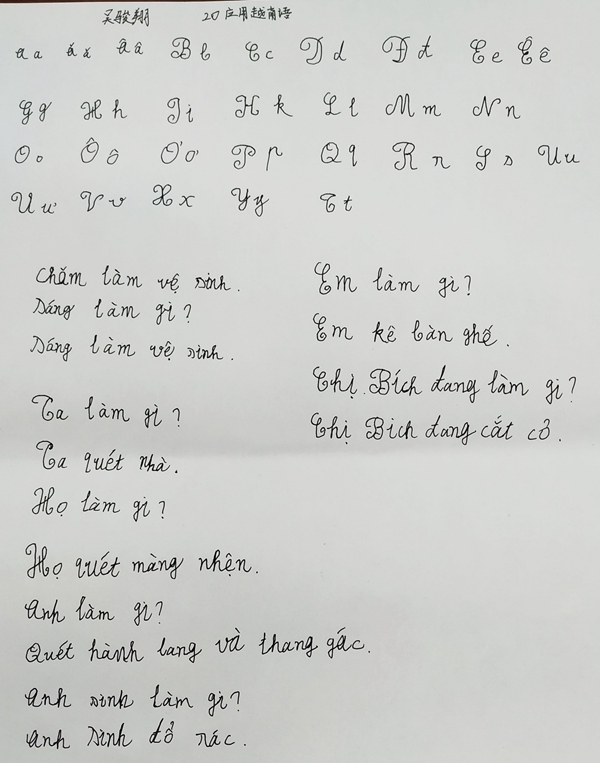 吴骏翔 20应用越南语
A a Ă ă Â â B b C c D d Đ đ E e Ê ê
G g H h I i K k L l M m N n
O o Ô ô Ơ ơ P p Q q R r S s U u
Ư ư V v X x Y y T t
Chăm làm vệ sinh.
Sáng làm gì?
Sáng làm vệ sinh.
Ta làm gì?
Ta quét nhà.
Họ làm gì?
Họ quét màng nhện.
Anh làm gì?
Quét hành lang và thang gác.
Anh sinh làm gì?
Anh Sinh đổ rác.
Em làm gì?
Em kê bàn ghế.
Chị Bích đang làm gì?
Chị Bích đang cắt cỏ.